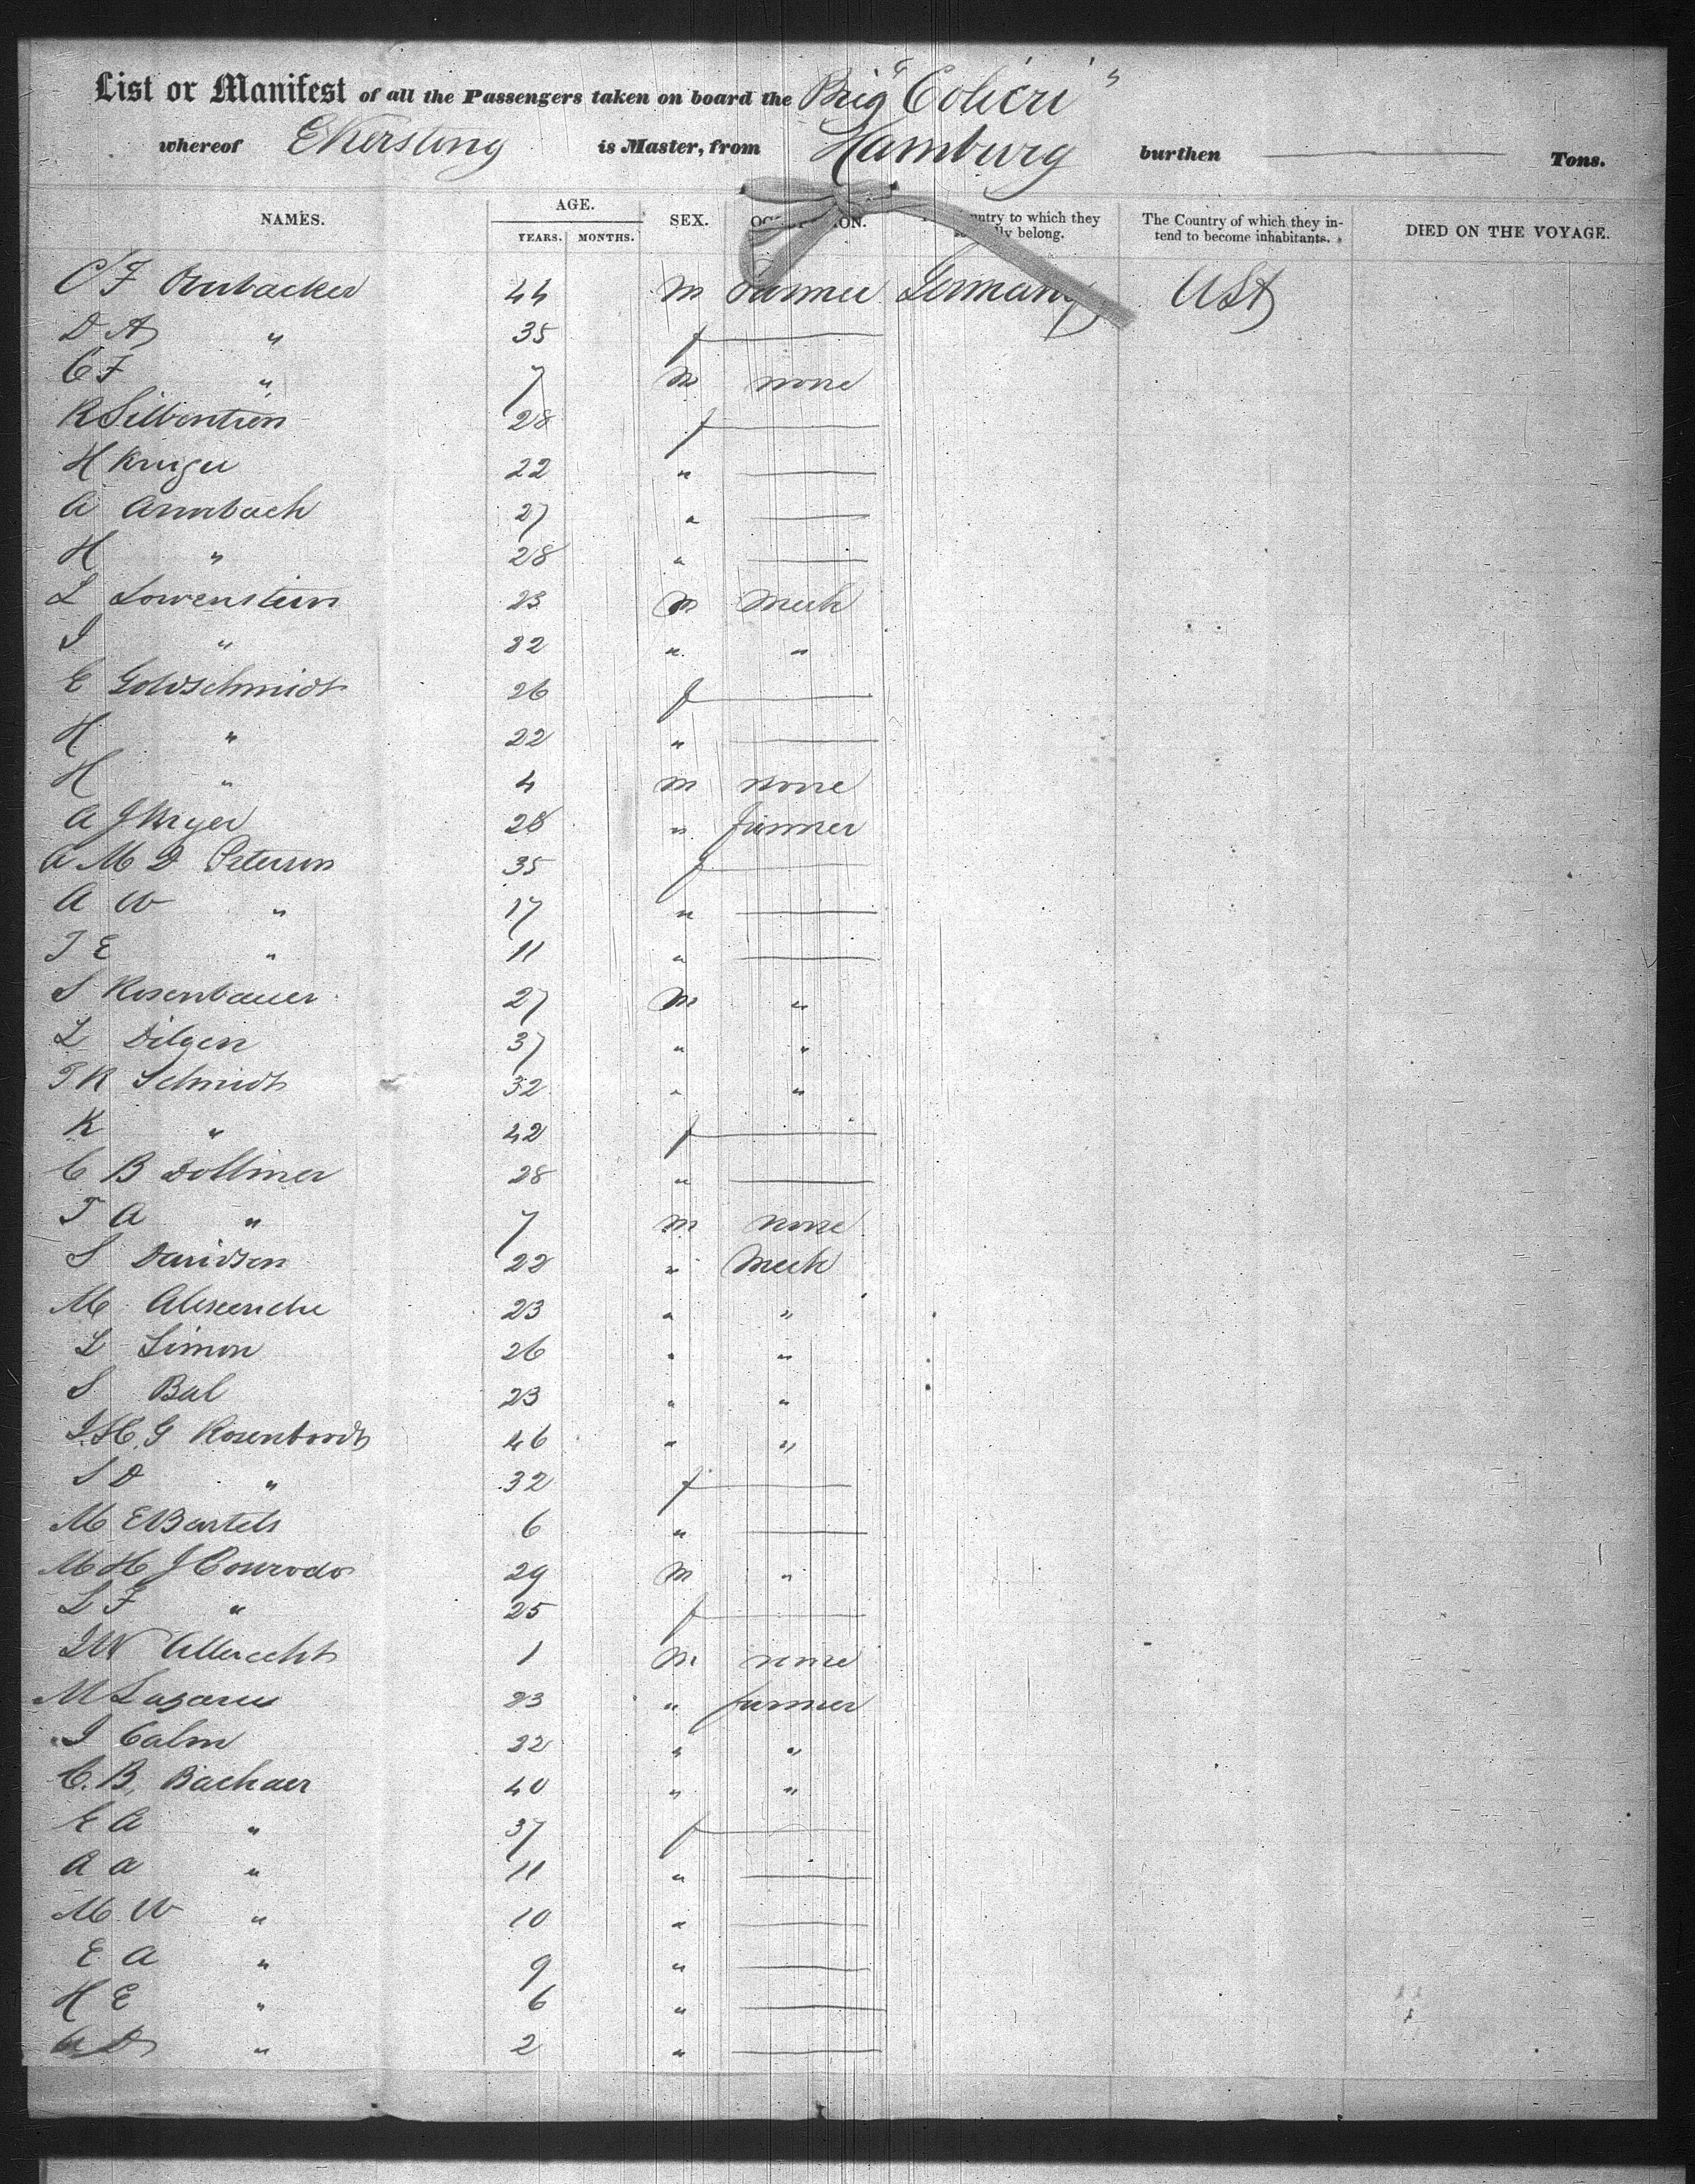 List or Manifest of all the Passengers taken on board the Brig "Colibri"
whereof E Kersting is Master, from Hamburg burthen Tons.
NAMES. AGE. YEARS. MONTHS. SEX. The Country of which they intend to become inhabitants. DIED ON THE VOYAGE.
C F 44 m Farmer Germany USt
D A " 35 f
C F " 7 m none
R 28 f
H Kruger 22 "
A Armbach 27 "
H " 28 "
L Lowenstein 23 m Mech
I " 22 " "
E Goldschmidt 26 f
H " 22 "
H " 4 m none
A J 28 " farmer
A M D Peterson 35 f
A W " 17 "
T E " 11 "
S Rosenbauer 27 m "
L Dilgen 37 " "
T K Schmidt 32 " "
K " 42 f
C B Dollmer 28 "
T A " 7 m none
S Davidson 22 " Mech
M 23 " "
L Simon 26 " "
S Bal 23 " "
G 46 " "
S D " 32 f
M E Bartels 6 "
M H J 29 m "
L F " 25 f
J W Albrecht 1 m none
M Lazarus 23 " farmer
I Calm 22 " "
C. B. Bachaer 40 " "
E A " 37 f
A A " 11 "
M. W " 10 "
E A " 9 "
H E " 6 "
" 2 "